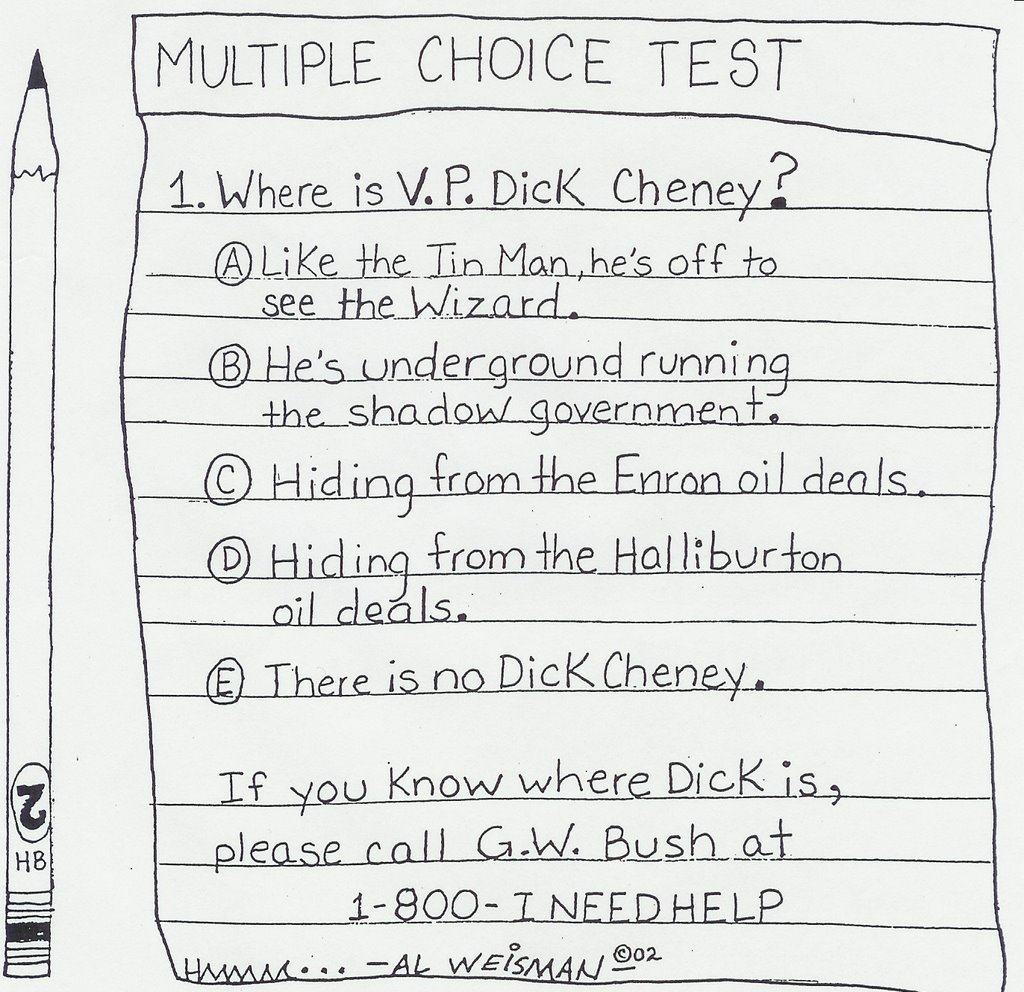 MULTIPLE CHOICE TEST
1. Where is V.P. Dick Cheney?
Ⓐ Like the Tin Man, he's off to
see the Wizard.
Ⓑ He's underground running
the shadow government.
Ⓒ Hiding from the Enron oil deals.
Ⓓ Hiding from the Halliburton
oil deals.
Ⓔ There is no Dick Cheney.
If you know where Dick is,
please call G.W. Bush at
1-800-I NEED HELP
Hmmm... -AL WEiSMAN ©02
2
HB